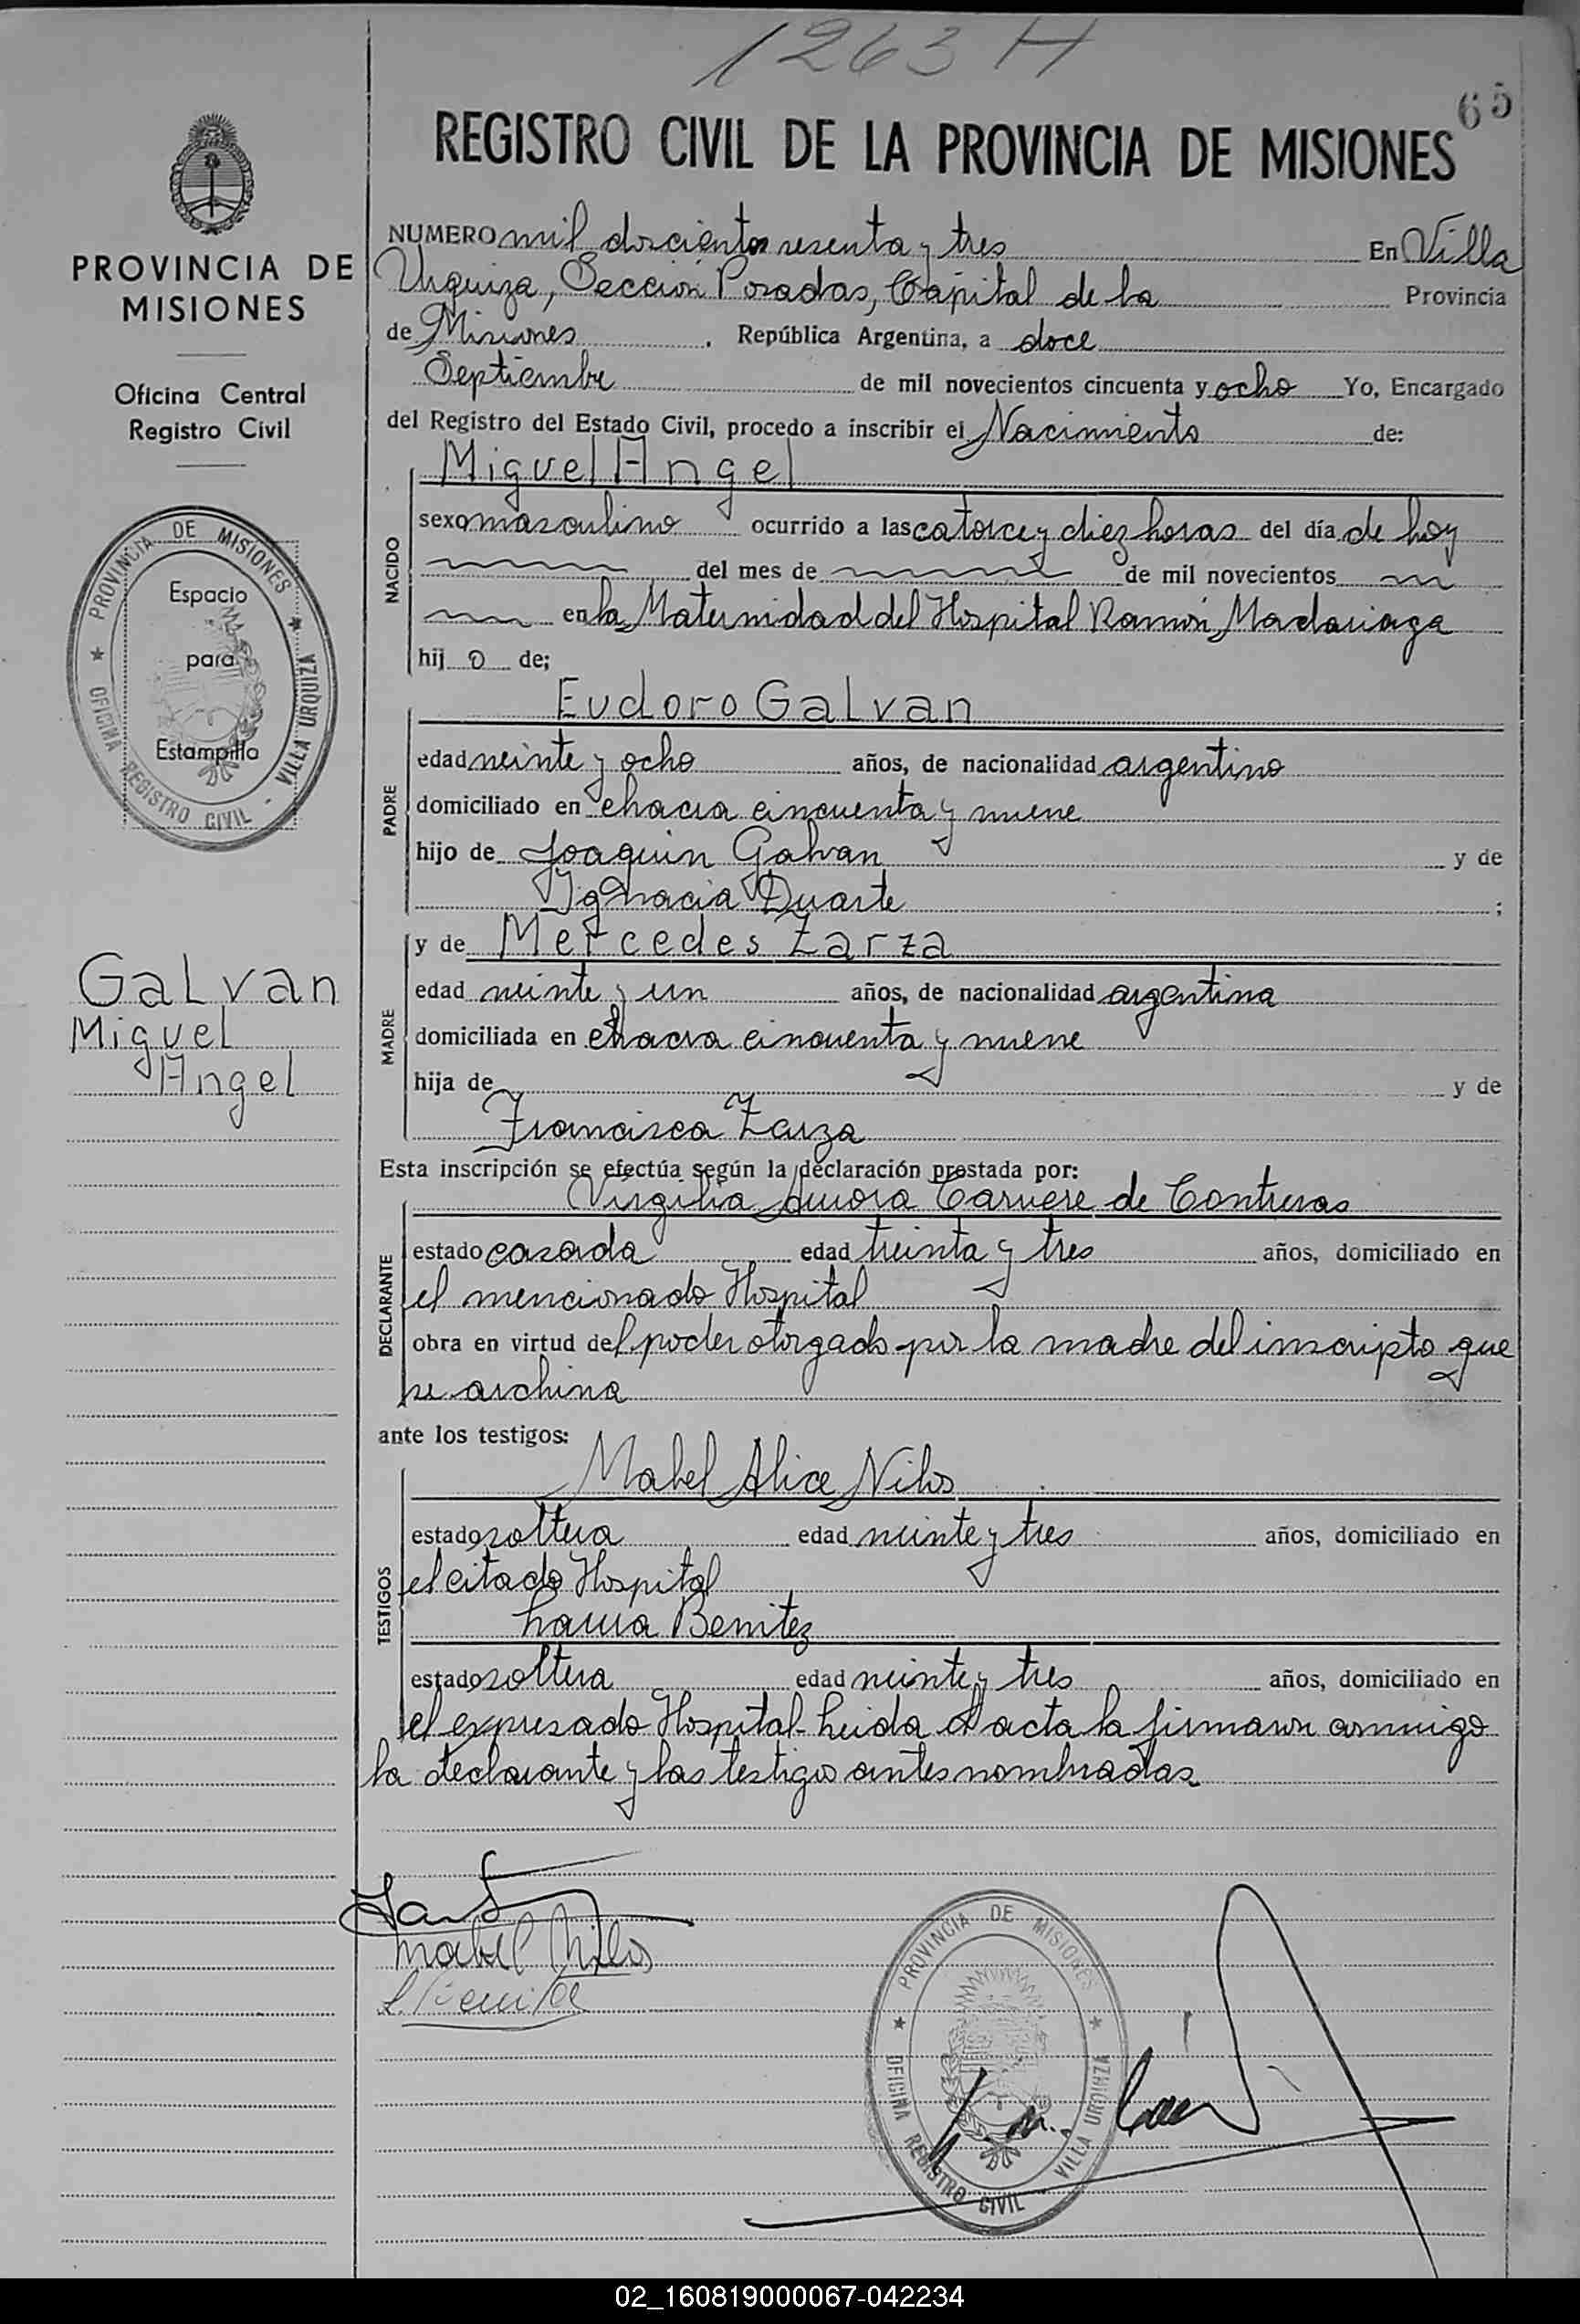 1263 H
65
REGISTRO CIVIL DE LA PROVINCIA DE MISIONES
PROVINCIA DE
MISIONES
Oficina Central
Registro Civil
PROVINCIA DE MISIONES
OFICINA REGISTRO CIVIL - VILLA URQUIZA
Espacio
para
Estampilla
Galvan
Miguel
Angel
NUMERO mil doscientos sesenta y tres En Villa
Urquiza, Sección Posadas, Capital de la Provincia
de Misiones, República Argentina, a doce
Septiembre de mil novecientos cincuenta y ocho Yo, Encargado
del Registro del Estado Civil, procedo a inscribir el Nacimiento de:
NACIDO
Miguel Angel
sexo masculino ocurrido a las catorce y diez horas del día de hoy
del mes de de mil novecientos
en la Maternidad del Hospital Ramón Madariaga
hij o de;
PADRE
Eudoro Galvan
edad veinte y ocho años, de nacionalidad argentino
domiciliado en chacra cincuenta y nueve
hijo de Joaquin Galvan y de
Ignacia Duarte ;
MADRE
y de Mercedes Zarza
edad veinte y un años, de nacionalidad argentina
domiciliada en chacra cincuenta y nueve
hija de y de
Francisca Zarza
Esta inscripción se efectúa según la declaración prestada por:
DECLARANTE
Virgilia Aurora de Contreras
estado casada edad treinta y tres años, domiciliado en
el mencionado Hospital
obra en virtud del poder otorgado por la madre del inscripto que
se archiva
ante los testigos:
TESTIGOS
Mabel Alice Nilos
estado soltera edad veinte y tres años, domiciliado en
el citado Hospital
Laura Benitez
estado soltera edad veinte y tres años, domiciliado en
el expresado Hospital- Leida el acta la firmaron conmigo
la declarante y las testigos antes nombradas
Mabel Nilos
L. Benitez
PROVINCIA DE MISIONES
OFICINA REGISTRO CIVIL VILLA URQUIZA
02_160819000067-042234